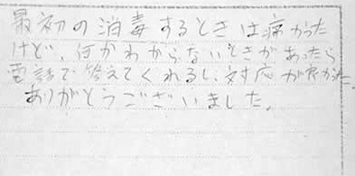 最初の消毒するときは痛かった
けど、何かわからないときがあったら
電話で答えてくれるし、対応が良かった。
ありがとうございました。